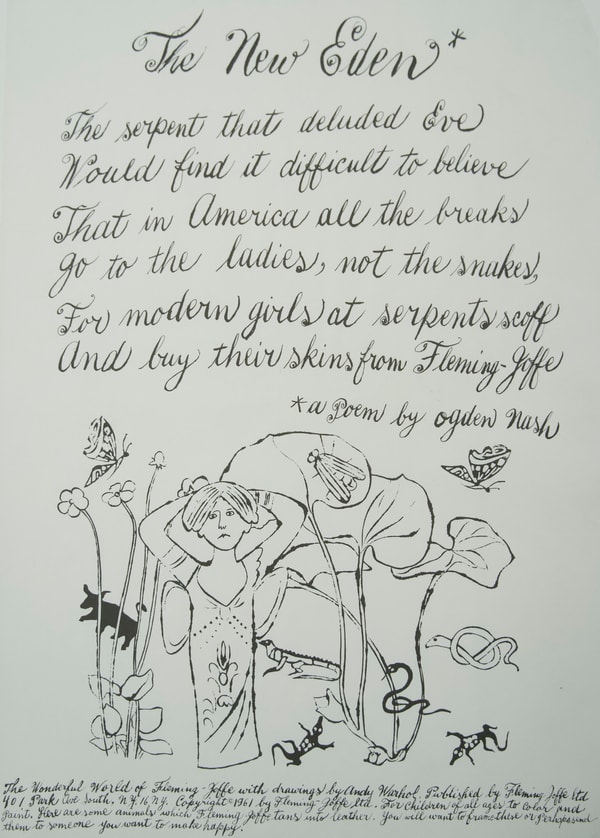 The New Eden*
The serpent that deluded Eve
Would find it difficult to believe
That in America all the breaks
go to the ladies, not the snakes,
For modern girls at serpents scoff
And buy their skins from Fleming-Joffe
*a Poem by ogden Nash
The Wonderful World of Fleming-Joffe with drawings by Andy Warhol. Published by Fleming Joffe Ltd
401 Park Ave South, N.Y. 16 N.Y. Copyright 1961 by Fleming-Joffe Ltd. For children of all ages to color and
paint. Here are some animals which Fleming Joffe tans into leather. You will want to frame these or perhaps send
them to someone you want to make happy.